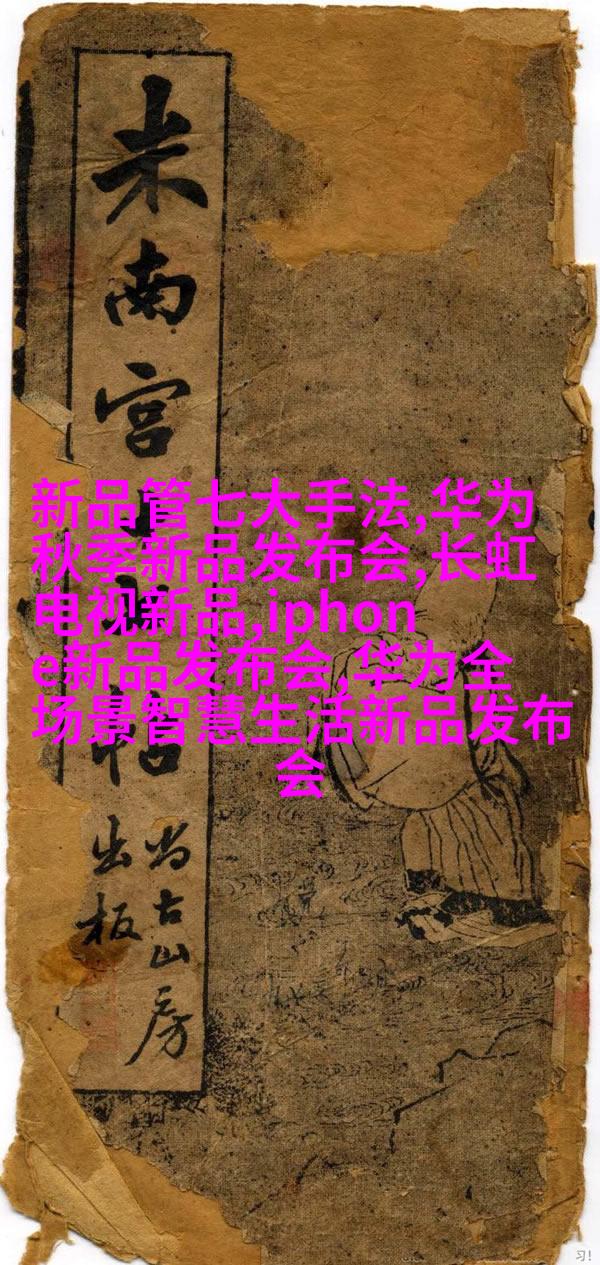 米南宫
帖
尚古山房
出板
新品管七大手法,华为
秋季新品发布会,长虹
电视新品,iphon
e新品发布会,华为全
场景智慧生活新品发布
会
习!